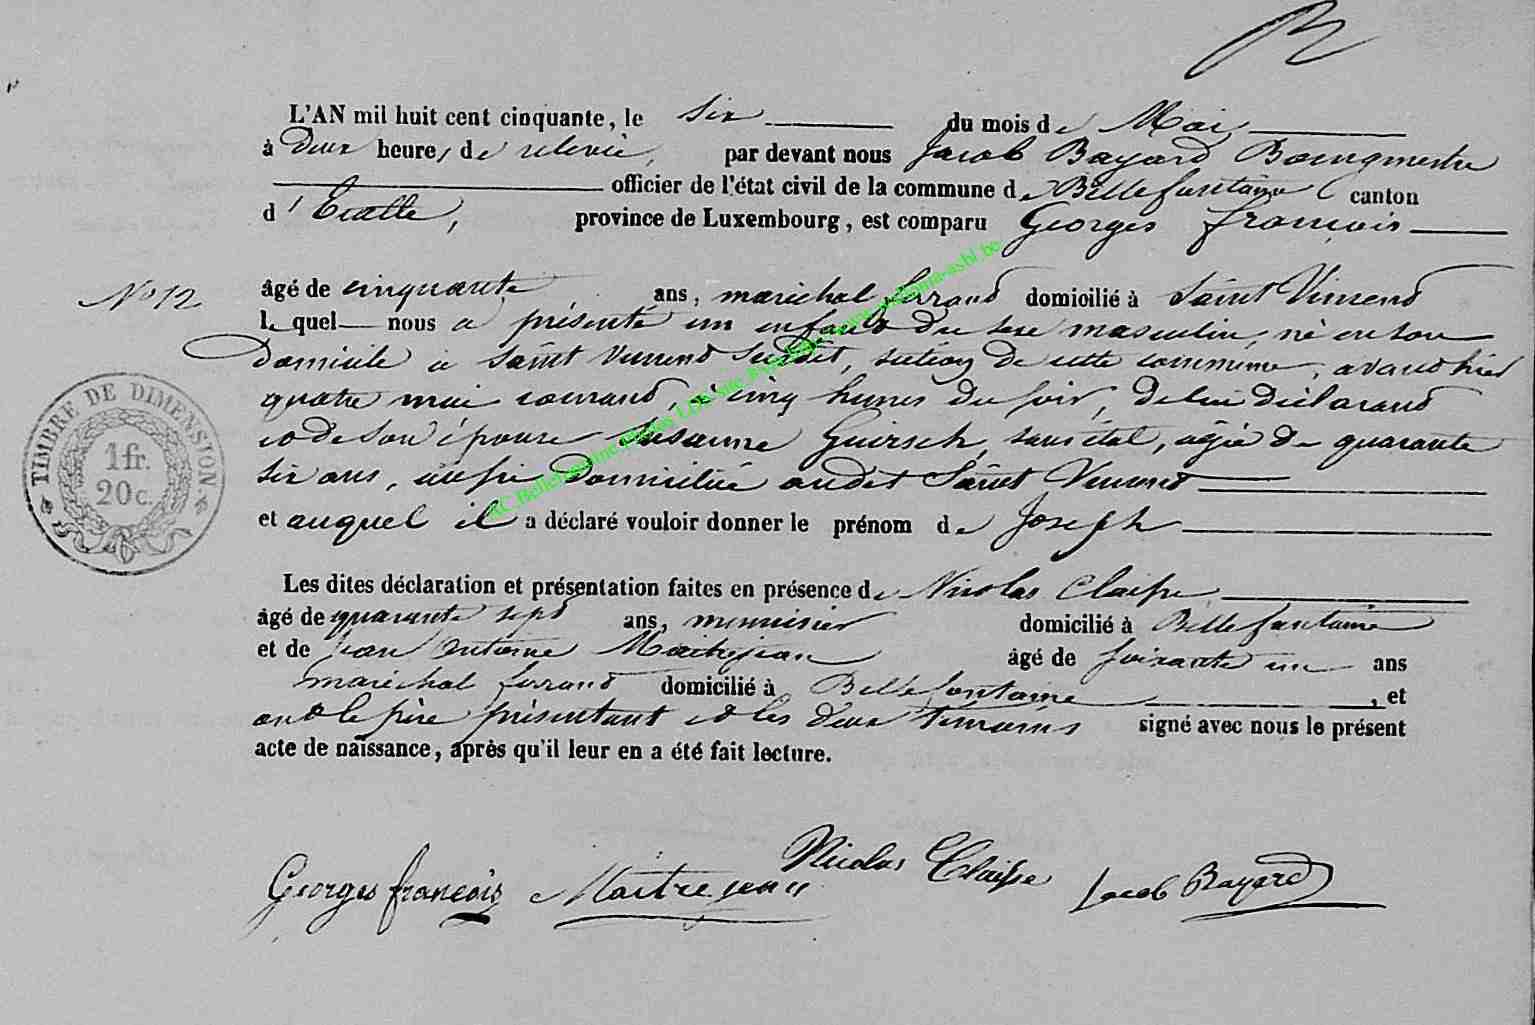 L'AN mil huit cent cinquante, le six du mois de Mai
à deux heures de relevée, par devant nous Jacob Bayard Bourgmestre
officier de l'état civil de la commune de Bellefontaine canton
d'Etalle, province de Luxembourg, est comparu Georges françois
N° 12
âgé de cinquante ans, maréchal ferrand domicilié à Saint Vincend
lequel nous a présenté un enfant du sexe masculin, né en son
domicile à Saint Vincend susdit, section de cette commune, avand hier
quatre mai courand, à cinq heures du soir, de lui déclarand
et de son épouse Susanne Guirsch, sans état, agée de quarante
six ans, aussi domiciliée audit Saint Vincend
et auquel il a déclaré vouloir donner le prénom de Joseph
TIMBRE DE DIMENSION
1fr.
20c.
Les dites déclaration et présentation faites en présence de Nicolas Claisse
âgé de quarante sept ans, menuisier domicilié à Bellefontaine
et de jean antoine Maitrejean âgé de soixante un ans
maréchal ferrand domicilié à Bellefontaine, et
ont le père présentant et les deux témoins signé avec nous le présent
acte de naissance, après qu'il leur en a été fait lecture.
Georges françois Maitrejean Nicolas Claisse Jacob Bayard